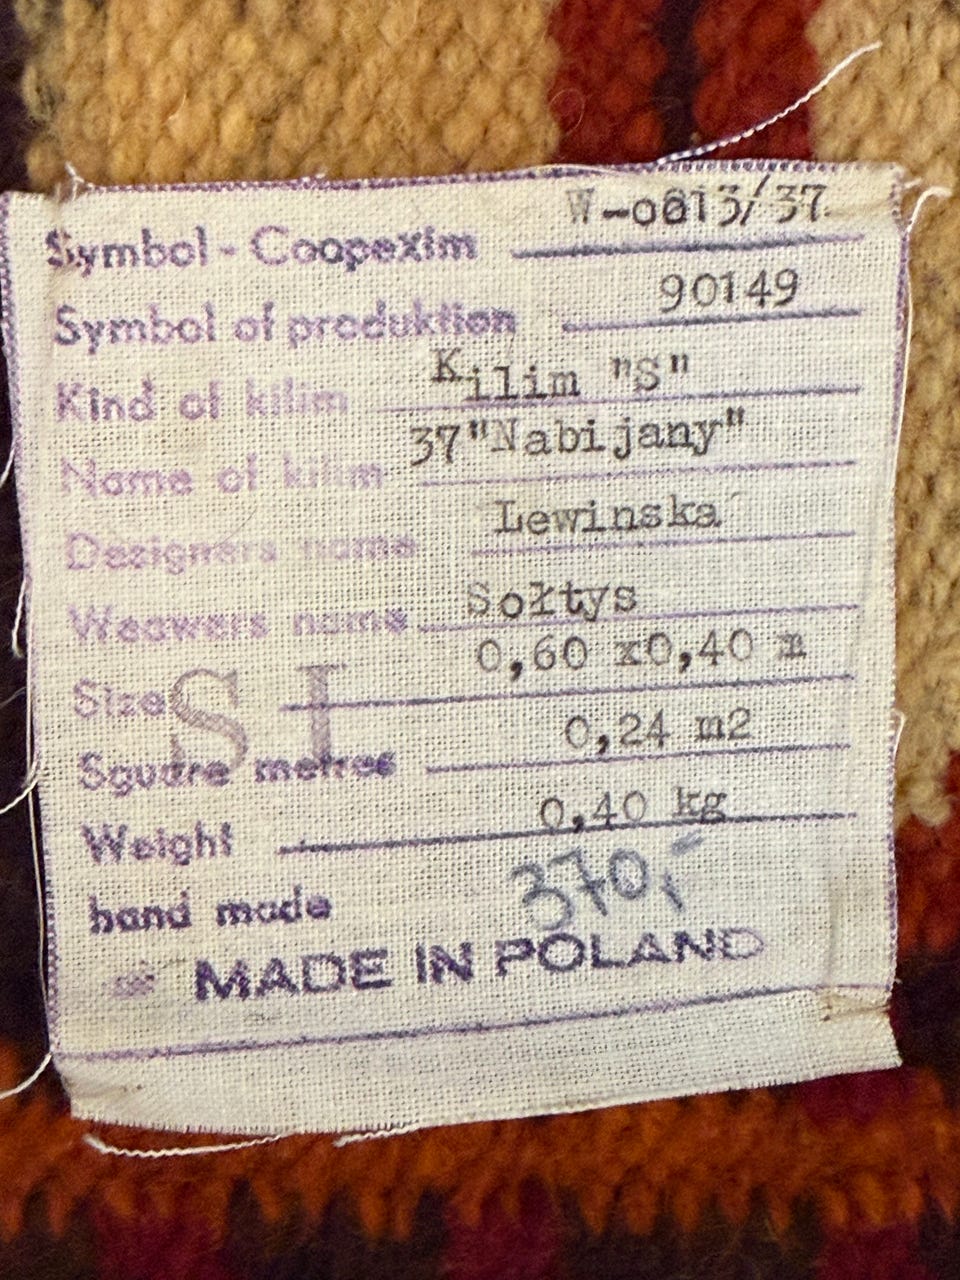 Symbol - Coopexim W-0013/37
Symbol of produktion 90149
Kind of kilim Kilim "S"
Name of kilim 37 "Nabijany"
Designers name Lewinska
Weawers name Sołtys
Size 0,60 x0,40 m
S I
Sguare metres 0,24 m2
Weight 0,40 kg
hand made 370,-
MADE IN POLAND